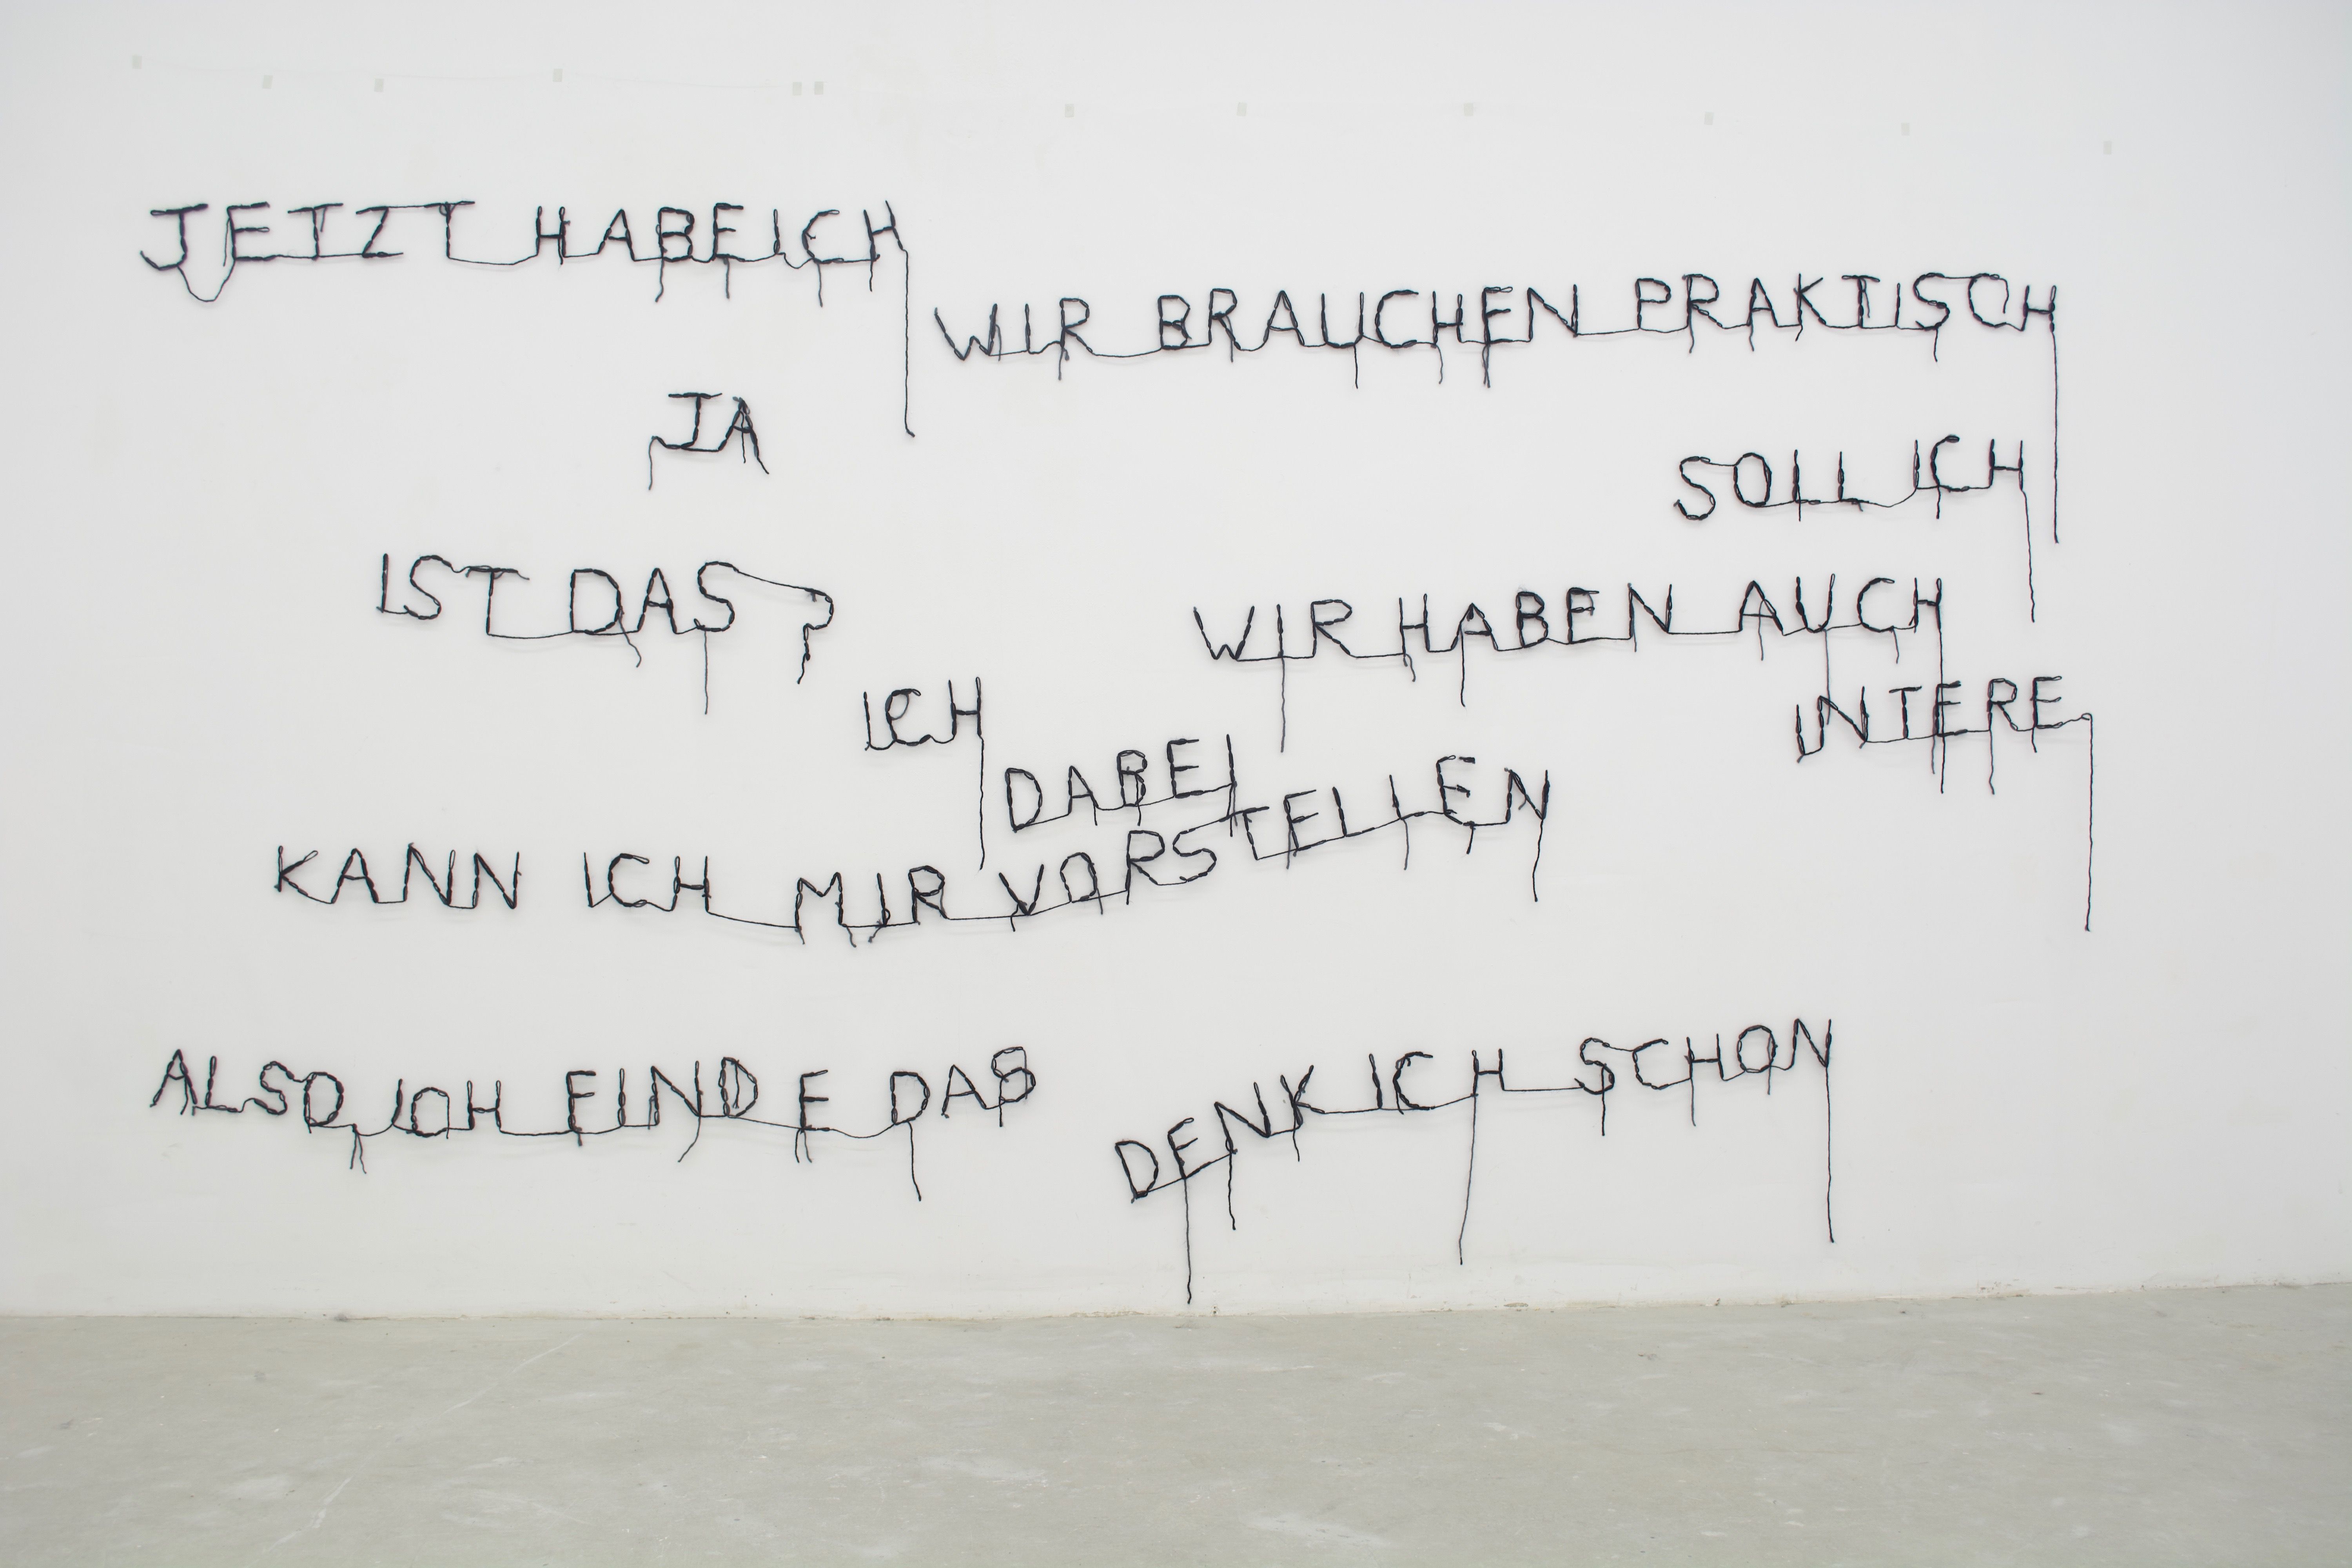 JETZT HABE ICH
WIR BRAUCHEN PRAKTISCH
JA
SOLL ICH
IST DAS?
WIR HABEN AUCH
INTERE
ICH
DABEI
KANN ICH MIR VORSTELLEN
ALSO ICH FINDE DAS
DENK ICH SCHON